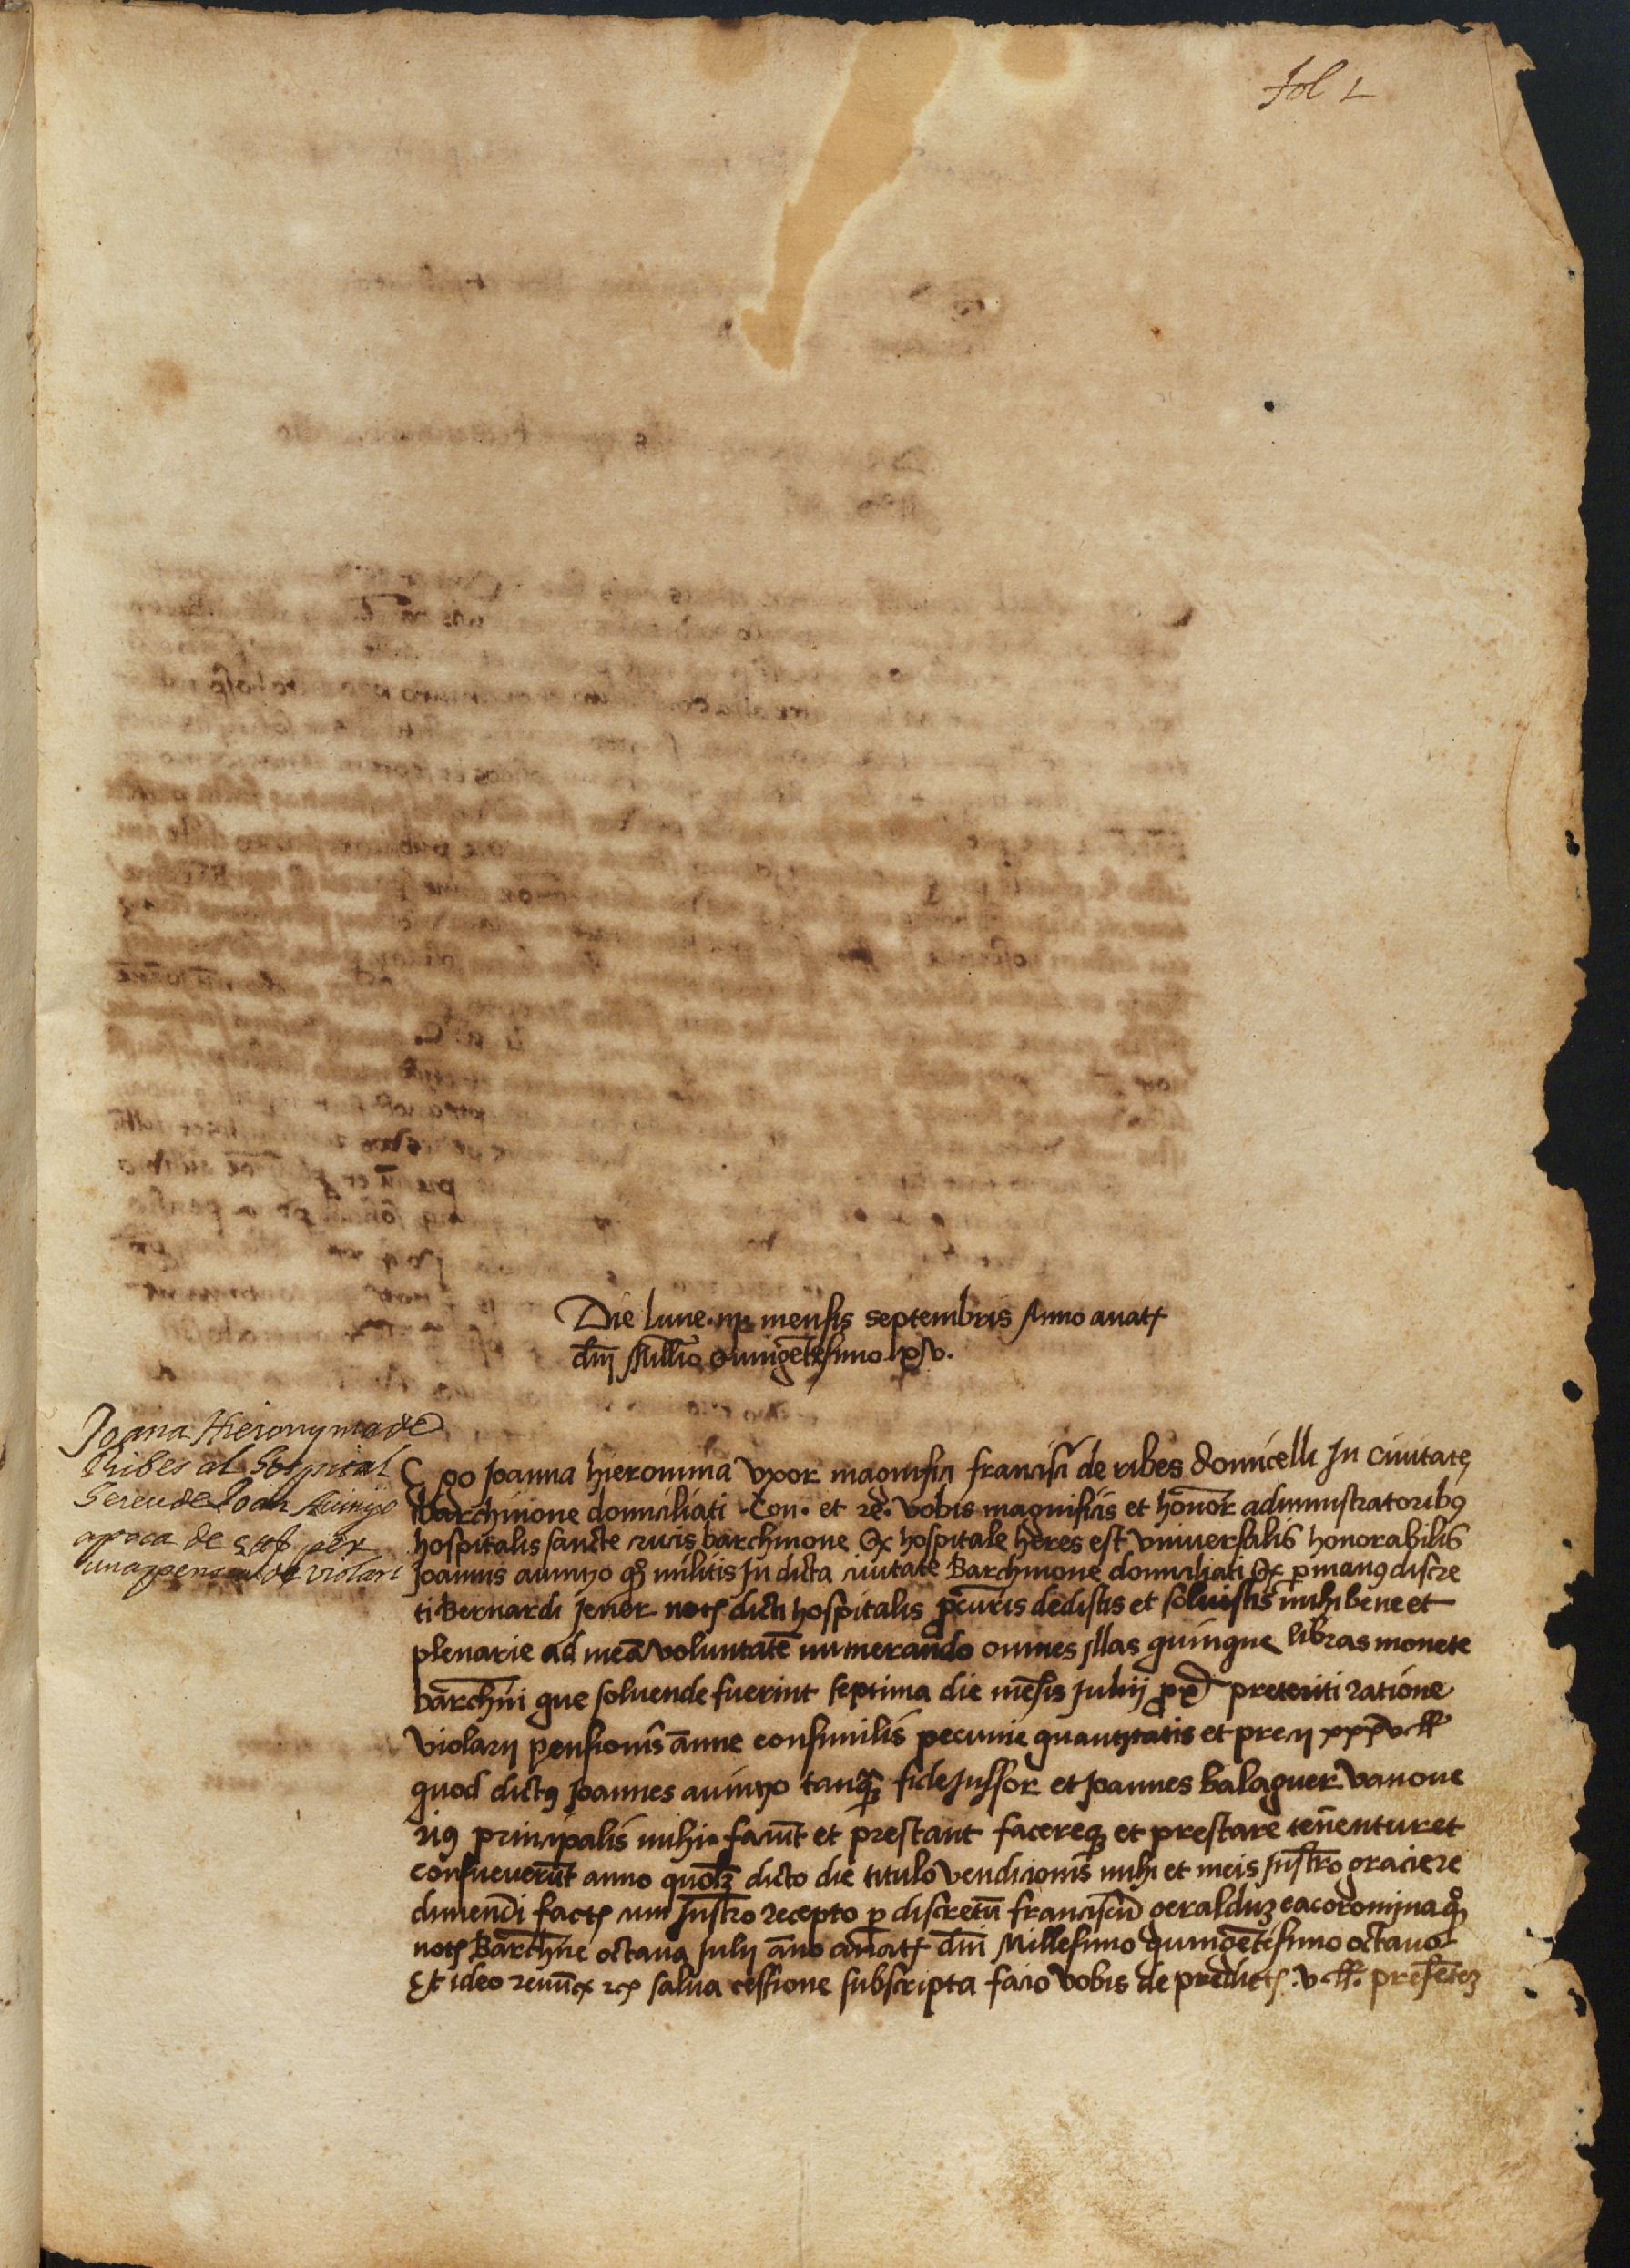 fol 1
Die lune .iij. mensis septembris Anno a nat
dnj Millio quingetesimo xv.
Joana Hieronyma de
Ribes al Hospital
hereu de Joan Auinyo
apoca de per
una pensio de violari
Ego Joanna hieronima Vxor magnifici francisci de ribes domicelli Jn Ciuitate
Barchinone domiciliati Con. et re. Vobis magnificis et honor administratoribus
hospitalis sancte crucis barchinone Qd hospitale heres est vniuersalis honorabilis
Joannis auinyo qm militis Jn dicta ciuitate Barchinone domiciliati Qd p manus discre
ti Bernardi Jener not dicti hospitalis procuris dedistis et soluistis mihi bene et
plenarie ad mea Voluntate numerando omnes Jllas quinque libras monete
barchni que soluende fuerint septima die mesis Julij prox preteriti ratione
Violarij pensionis anne consimilis pecunie quantitatis et precij xxxv ll
quod dictus Joannes auinyo tanq fideJussor et Joannes balaguer Vanoue
rius principalis mihi faciut et prestant facereq et prestare tenentur et
consueuerut anno quolz dicto die titulo Vendicionis mihi et meis Jnstro gracie re
dimendi fact cum Jnstro recepto p discretu franciscu geralduz çacoromina qm
not Barchne octaua Julij ano a nat dni Millesimo quingetesimo octauo
Et ideo renu salua cessione subscripta facio Vobis de predict .v. ll. presetez